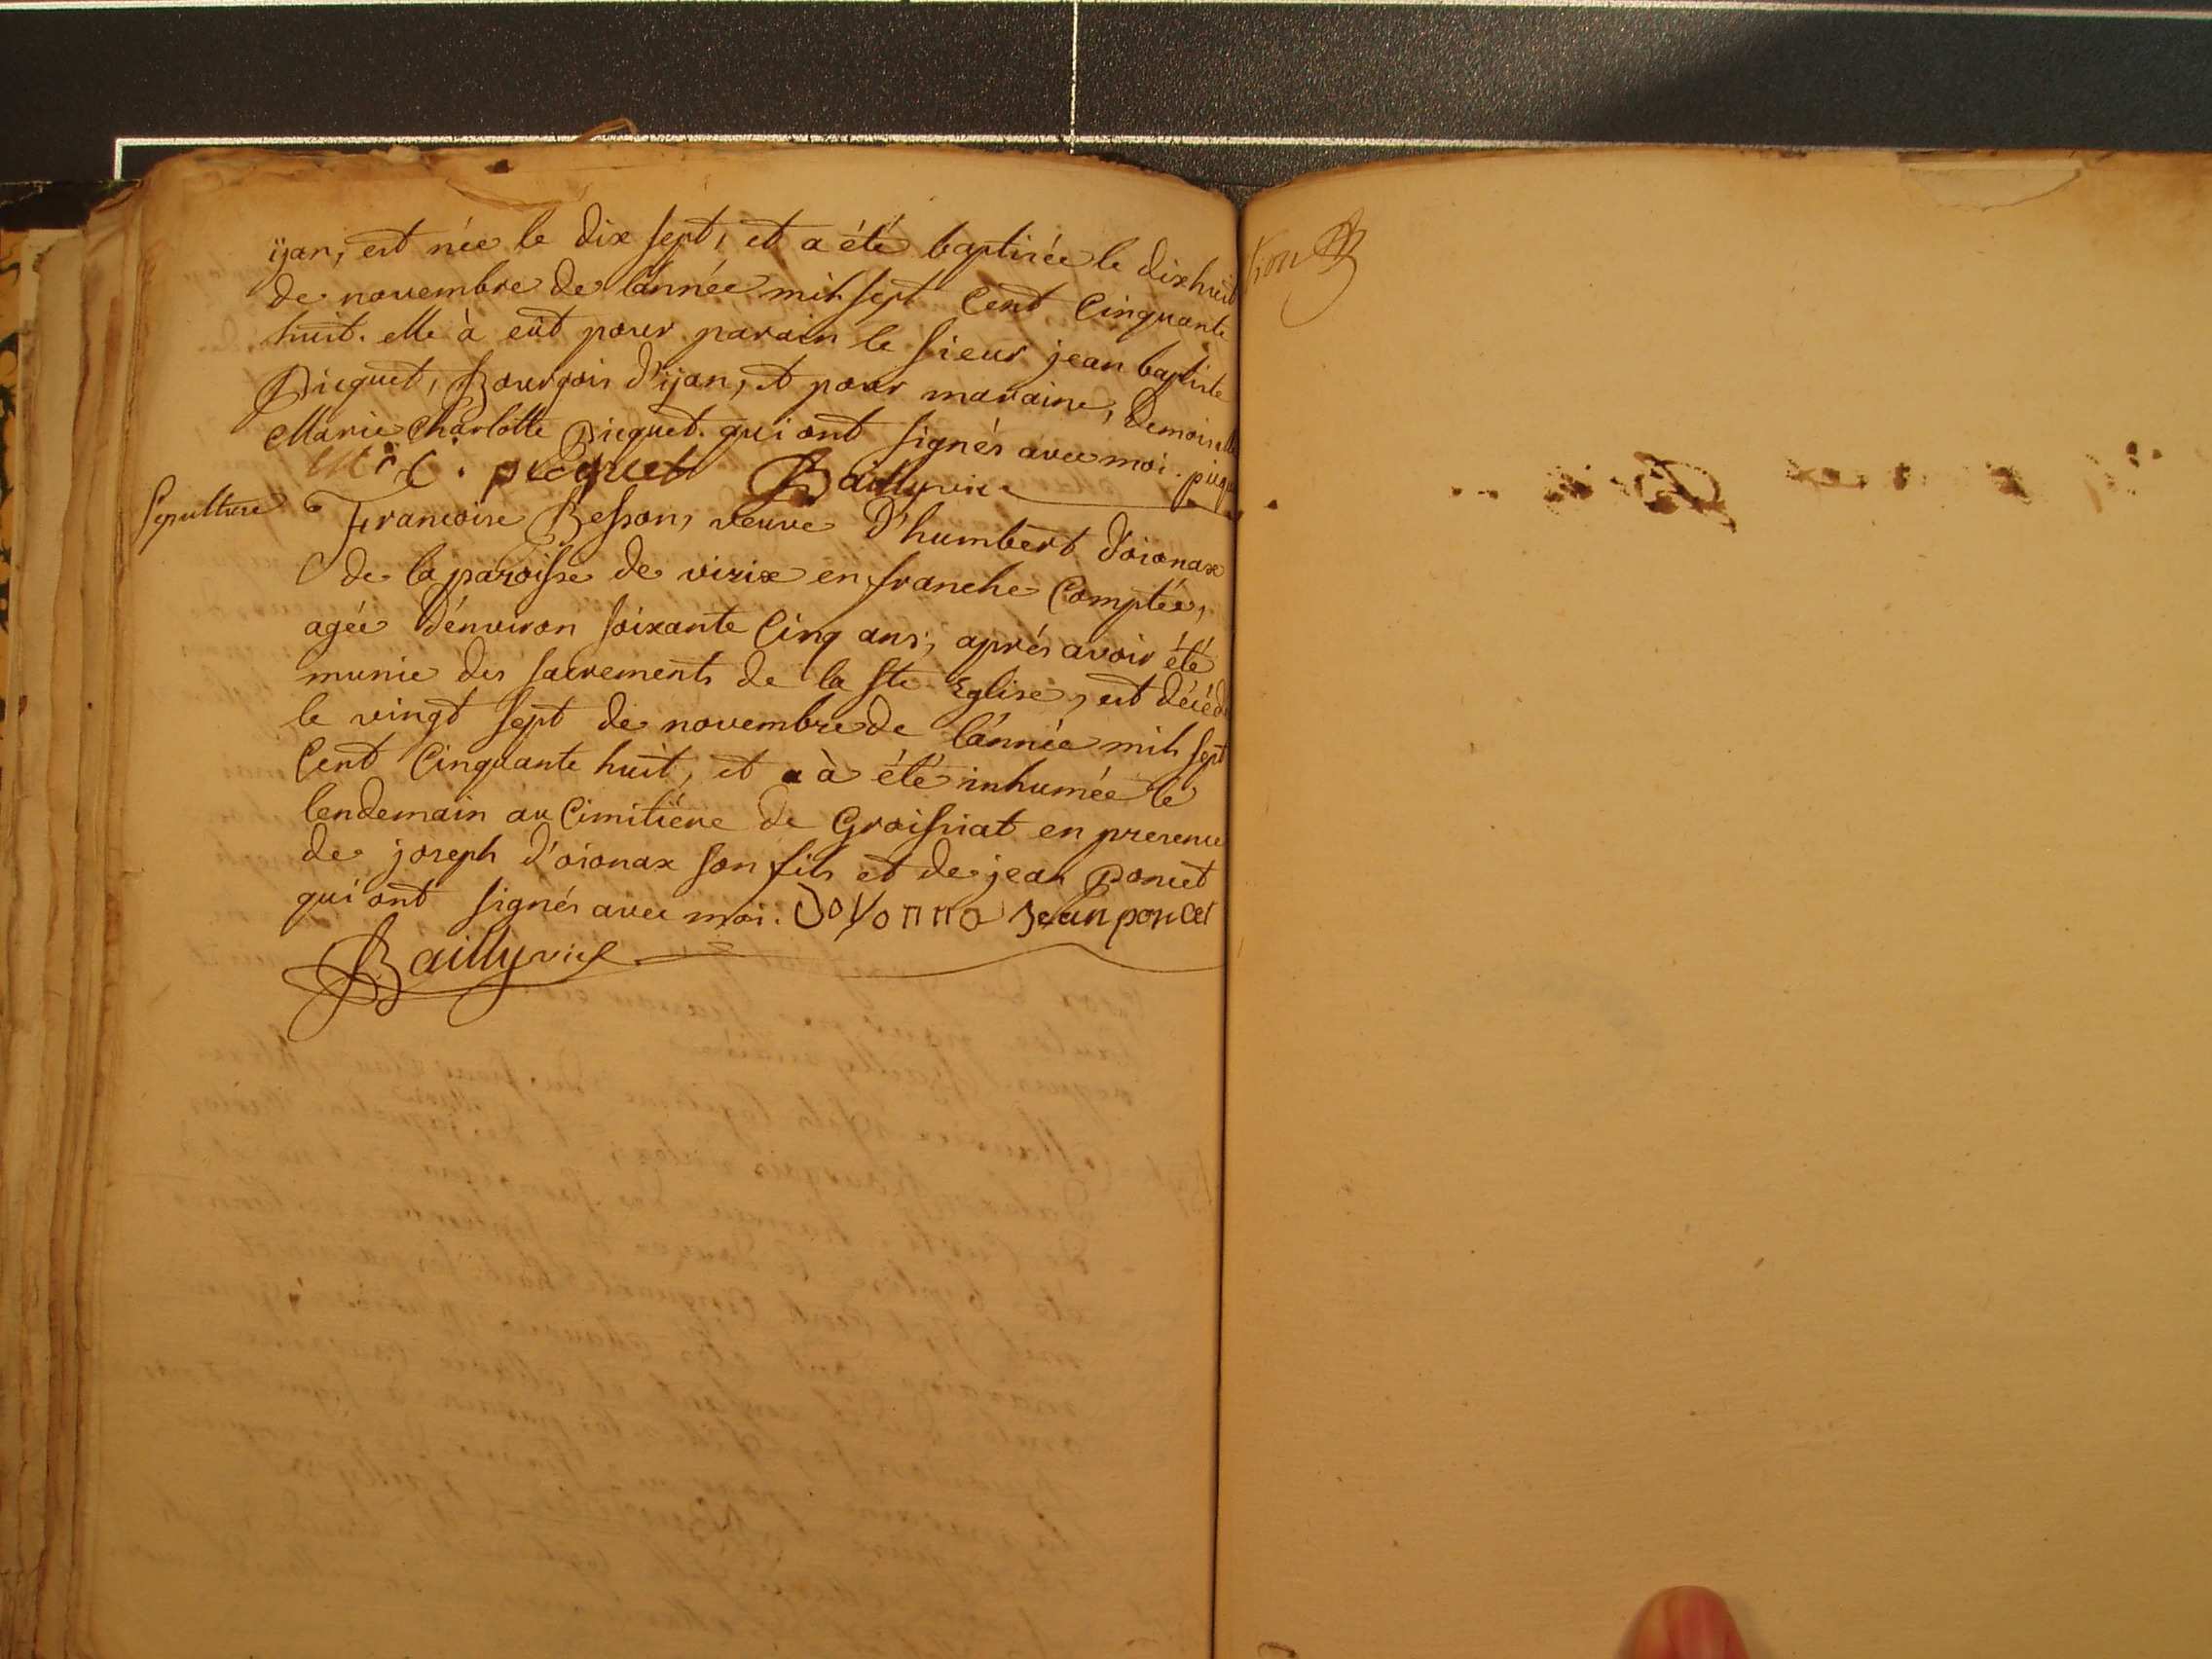 ijan, est née le dix sept, et a été baptisée le dixhuit
de novembre de lánnée mil sept Cent Cinquante
huit. elle à eût pour parain le sieur jean baptiste
Picquet, Bourgois d'ijan, et pour maraine, Demoiselle
Marie Charlotte Picquet. qui ont signés avec moi. picq
M. C. picquet Bailly vic.
Sepulture Francoise Besson, veuve d'humbert d'oionax
de la paroisse de virix en franche Comptée,
agée dénviron soixante Cinq ans, aprés avoir été
munie des sacrements de la ste Eglise, est décéd
le vingt sept de novembre de lánnée mil sept
Cent Cinquante huit, et à été inhumée le
lendemain au Cimitiére de Groissiat en presence
de joseph d'oionax son fils et de jean Poncet
qui ont signés avec moi. Jean poncet
Bailly vic